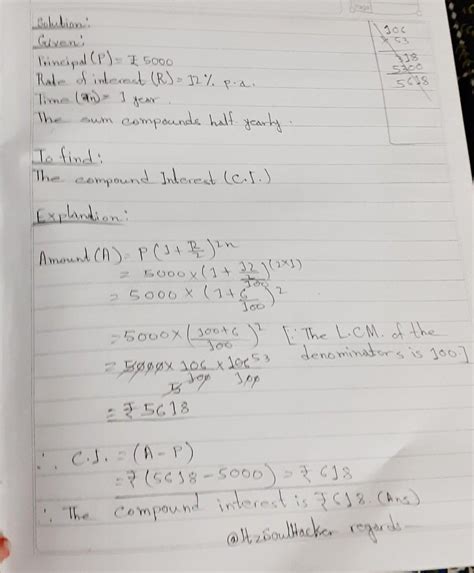 Solution:
Given:
Principal (P) = ₹ 5000
Rate of interest (R) = 12% p.a.
Time (n) = 1 year.
The sum compounds half yearly.
To find:
The compound Interest (C.I.)
Explandion:
Amount (A) = P(1 + R/2)^2n
= 5000 × (1 + 12/2/100)^(2×1)
= 5000 × (1 + 6/100)^2
= 5000 × (100+6/100)^2 [∵ The L.C.M. of the denominators is 100.]
= 5000 × 106/100 × 106/100 53
5
= ₹ 5618
∴ C.I. = (A - P)
= ₹ (5618 - 5000) = ₹ 618
∴ The compound interest is ₹ 618. (Ans)
@ItzSoulHacker regards
106
× 53
318
5300
5618